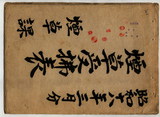 昭和十八年三月分
煙草受拂表
煙草課